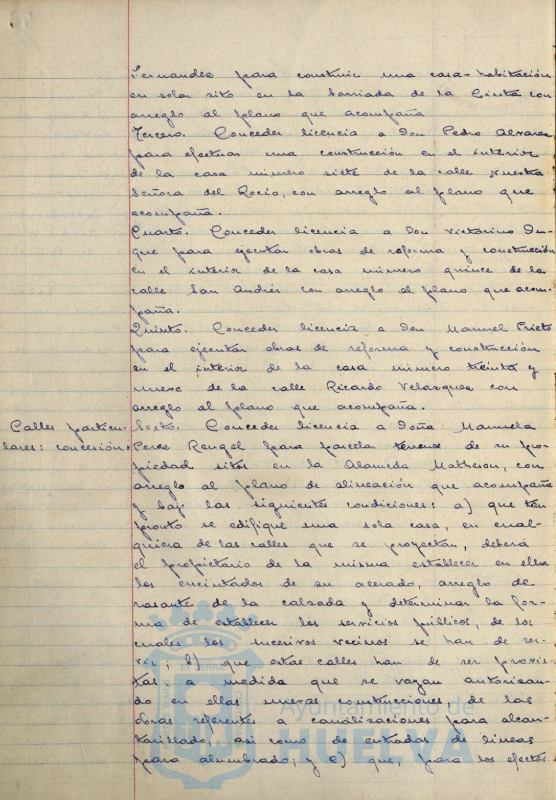 Fernandez para construir una casa-habitación
en solar sito en la barriada de la Cinta con
arreglo al plano que acompaña
Tercero. Conceder licencia a Don Pedro Alvarez
para efectuar una construcción en el interior
de la casa número siete de la calle Nuestra
Señora del Rocio, con arreglo al plano que
acompaña.
Cuarto. Conceder licencia a Don Victorino Du-
que para ejecutar obras de reforma y construcción
en el interior de la casa número quince de la
calle San Andrés con arreglo al plano que acom-
paña.
Quinto. Conceder licencia a Don Manuel Prieto
para ejecutar obras de reforma y construcción
en el interior de la casa número treinta y
nueve de la calle Ricardo Velazquez con
arreglo al plano que acompaña.
Calles particu-
lares: concesión.
Sexto. Conceder licencia a Doña Manuela
Perez Rengel para parcelar terrenos de su pro-
piedad sitos en la Alameda Matheson, con
arreglo al plano de alineación que acompaña
y bajo las siguientes condiciones: a) que tan
pronto se edifique una sola casa, en cual-
quiera de las calles que se proyectan, deberá
el propietario de la misma establecer en ella
los encintados de su acerado, arreglo de
rasante de la calzada y determinar la for-
ma de establecer los servicios públicos, de los
cuales los sucesivos vecinos se han de ser-
vir; b) que estas calles han de ser provis-
tas, a medida que se vayan autorizan-
do en ellas nuevas construcciones, de las
obras referentes a canalizaciones para alcan-
tarillado, asi como de entradas de lineas
para alumbrado; y c) que, para los efectos
Ayuntamiento de
HUELVA